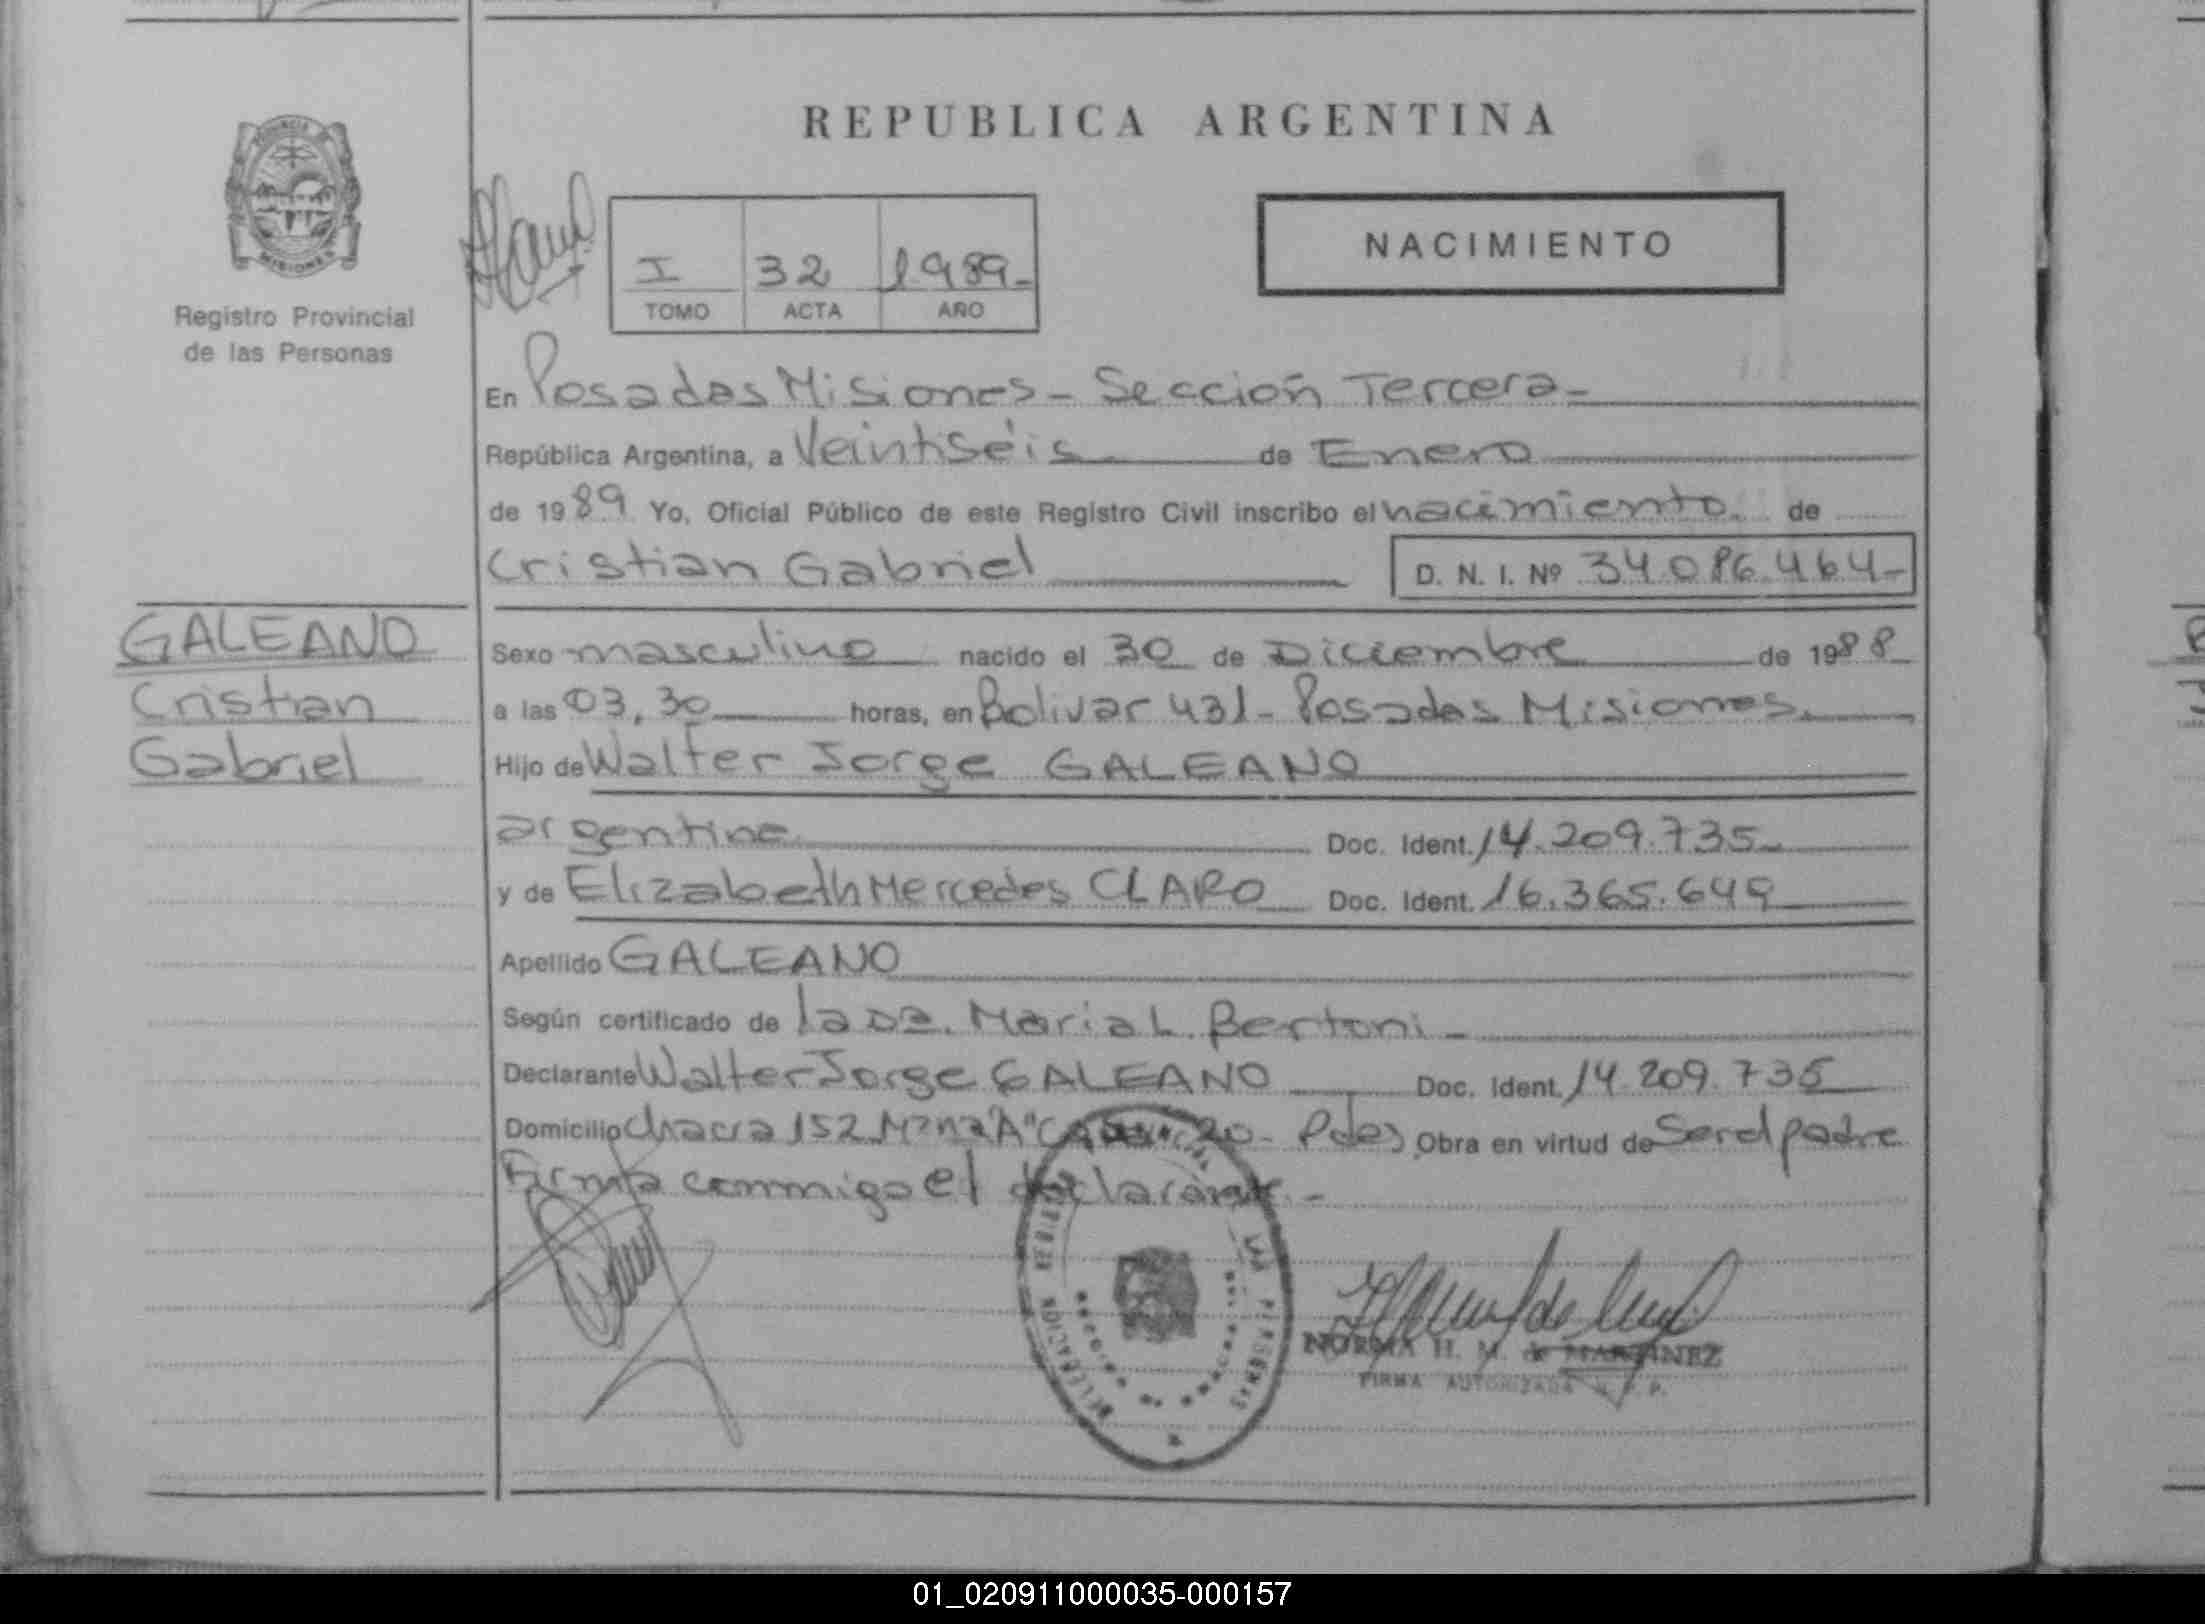 REPUBLICA ARGENTINA
PROVINCIA
MISIONES
Registro Provincial
de las Personas
I 32 1989-
TOMO ACTA AÑO
NACIMIENTO
En Posadas Misiones - Sección Tercera -
República Argentina, a Veintiséis de Enero
de 1989 Yo, Oficial Público de este Registro Civil inscribo el nacimiento. de
Cristian Gabriel D. N. I. Nº 34.086.464-
GALEANO
Cristian
Gabriel
Sexo masculino nacido el 30 de Diciembre de 1988
a las 03,30 horas, en Bolivar 431 - Posadas Misiones.
Hijo de Walter Jorge GALEANO
argentino Doc. Ident. 14.209.735
y de Elizabeth Mercedes CLARO Doc. Ident. 16.365.649
Apellido GALEANO
Según certificado de la Dra. Maria L. Bertoni -
Declarante Walter Jorge GALEANO Doc. Ident. 14.209.735
Domicilio Chacra 152 Mzna "A" 20 - Pdas Obra en virtud de Ser el padre
Firma conmigo el declarante. -
DELEGACION LAS PERSONAS
NORMA H. M. de MARTINEZ
FIRMA AUTORIZADA R. P. P.
01_020911000035-000157